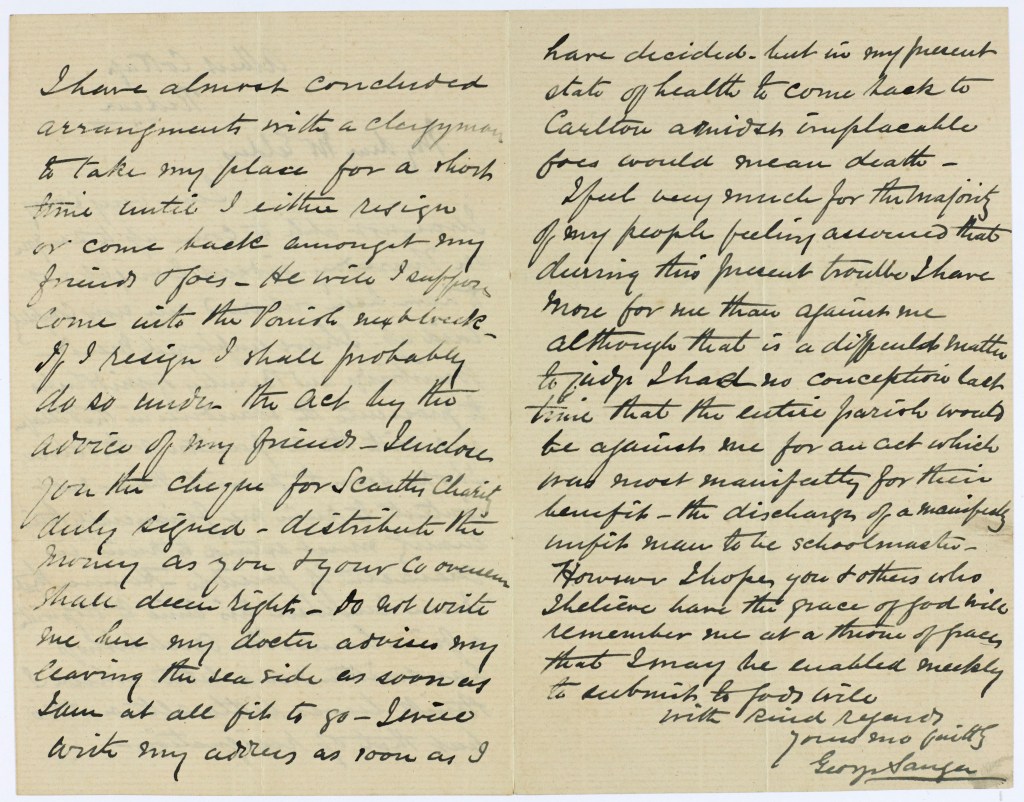 I have almost concluded
arrangments with a clergyman
to take my place for a short
time until I either resign
or come back amongst my
friends & foes – He will I suppose
come into the Parish next week –
If I resign I shall probably
do so under the Act by the
advice of my friends – I enclose
you the cheque for Scutts Charity
duly signed – distribute the
money as you & your Co overseer
shall deem right – Do not write
me here my doctor advises my
leaving the sea side as soon as
I am at all fit to go – I will
write my address as soon as I
have decided – but in my present
state of health to come back to
Carlton amidst implacable
foes would mean death –
I feel very much for the majority
of my people feeling assured that
durring this present trouble I have
more for me than against me
although that is a difficult matter
to judge I had no conception last
time that the entire parish would
be against me for an act which
was most manifestly for their
benefit – the discharge of a manifestly
unfit man to be schoolmaster –
However I hope you & others who
I believe have the grace of God will
remember me at a throne of grace
that I may be enabled meekly
to submit to Gods will
with kind regards
yours mo faithly
George Sanger